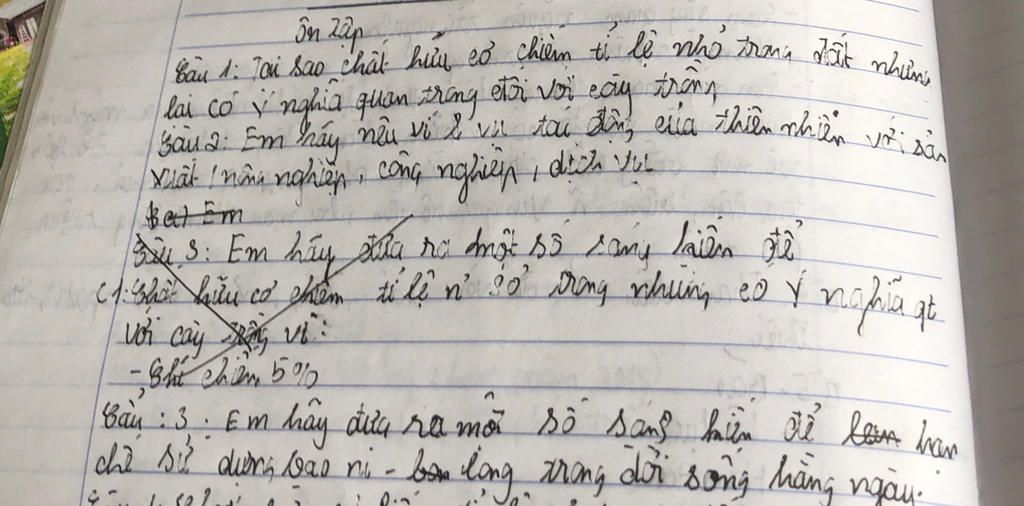 ôn tập
Câu 1: Tại sao chất hữu cơ chiếm tỉ lệ nhỏ trong đất nhưng
lại có ý nghĩa quan trọng đối với cây trồng
Câu 2: Em hãy nêu ví dụ tác động của thiên nhiên với sản
xuất nông nghiệp, công nghiệp, dịch vụ
Em
Câu 3: Em hãy đưa ra một số sáng kiến để
C1: Chất hữu cơ chiếm tỉ lệ nhỏ trong nhưng có ý nghĩa qt
với cây trồng vì:
- Chỉ chiếm 5%
Câu: 3: Em hãy đưa ra một số sáng kiến để hạn
chế sử dụng bao ni-long trong đời sống hằng ngày.